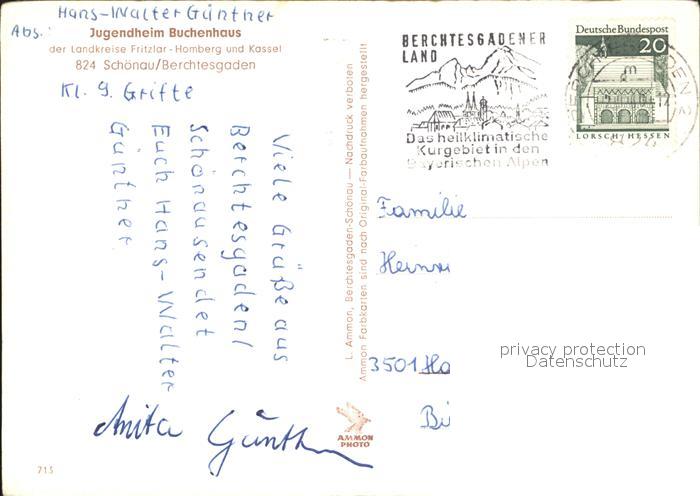 Hans-Walter Günther
Abs.:
Jugendheim Buchenhaus
der Landkreise Fritzlar-Homberg und Kassel
824 Schönau/Berchtesgaden
Kl. 9. Grifte
Viele Grüße aus
Berchtesgaden/
Schönau sendet
Euch Hans-Walter
Günther
Anita Günth
713
L. Ammon, Berchtesgaden-Schönau — Nachdruck verboten
Ammon Farbkarten sind nach Original-Farbaufnahmen hergestellt
AMMON
PHOTO
BERCHTESGADENER
LAND
Das heilklimatische
Kurgebiet in den
Bayerischen Alpen
Deutsche Bundespost
20
LORSCH/HESSEN
Familie
3501 Ho
Bi
privacy protection
Datenschutz